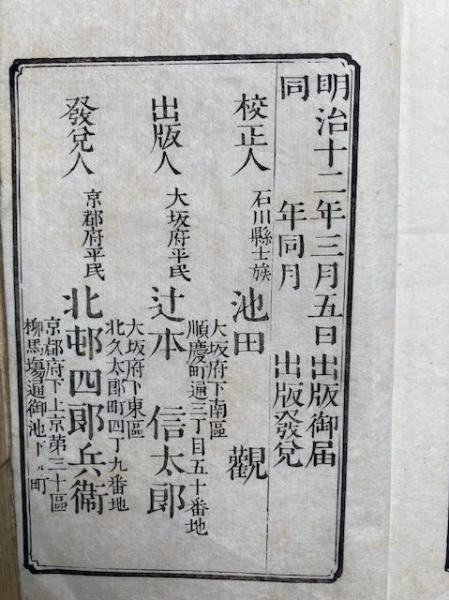 明治十二年三月五日出版御届
同 年同月 出版發兌
校正人 石川縣士族 池田 觀
大坂府下南區
順慶町通三丁目五十番地
出版人 大坂府平民 辻本 信太郎
大坂府下東區
北久太郎町四丁九番地
發兌人 京都府平民 北邨四郎兵衞
京都府下上京第三十區
柳馬塲通御池下ル町